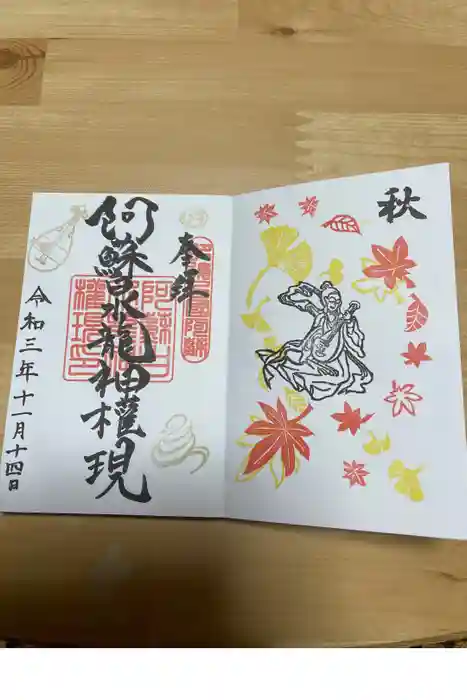 秋
奉拝
阿蘇白水龍神権現
令和三年十一月十四日